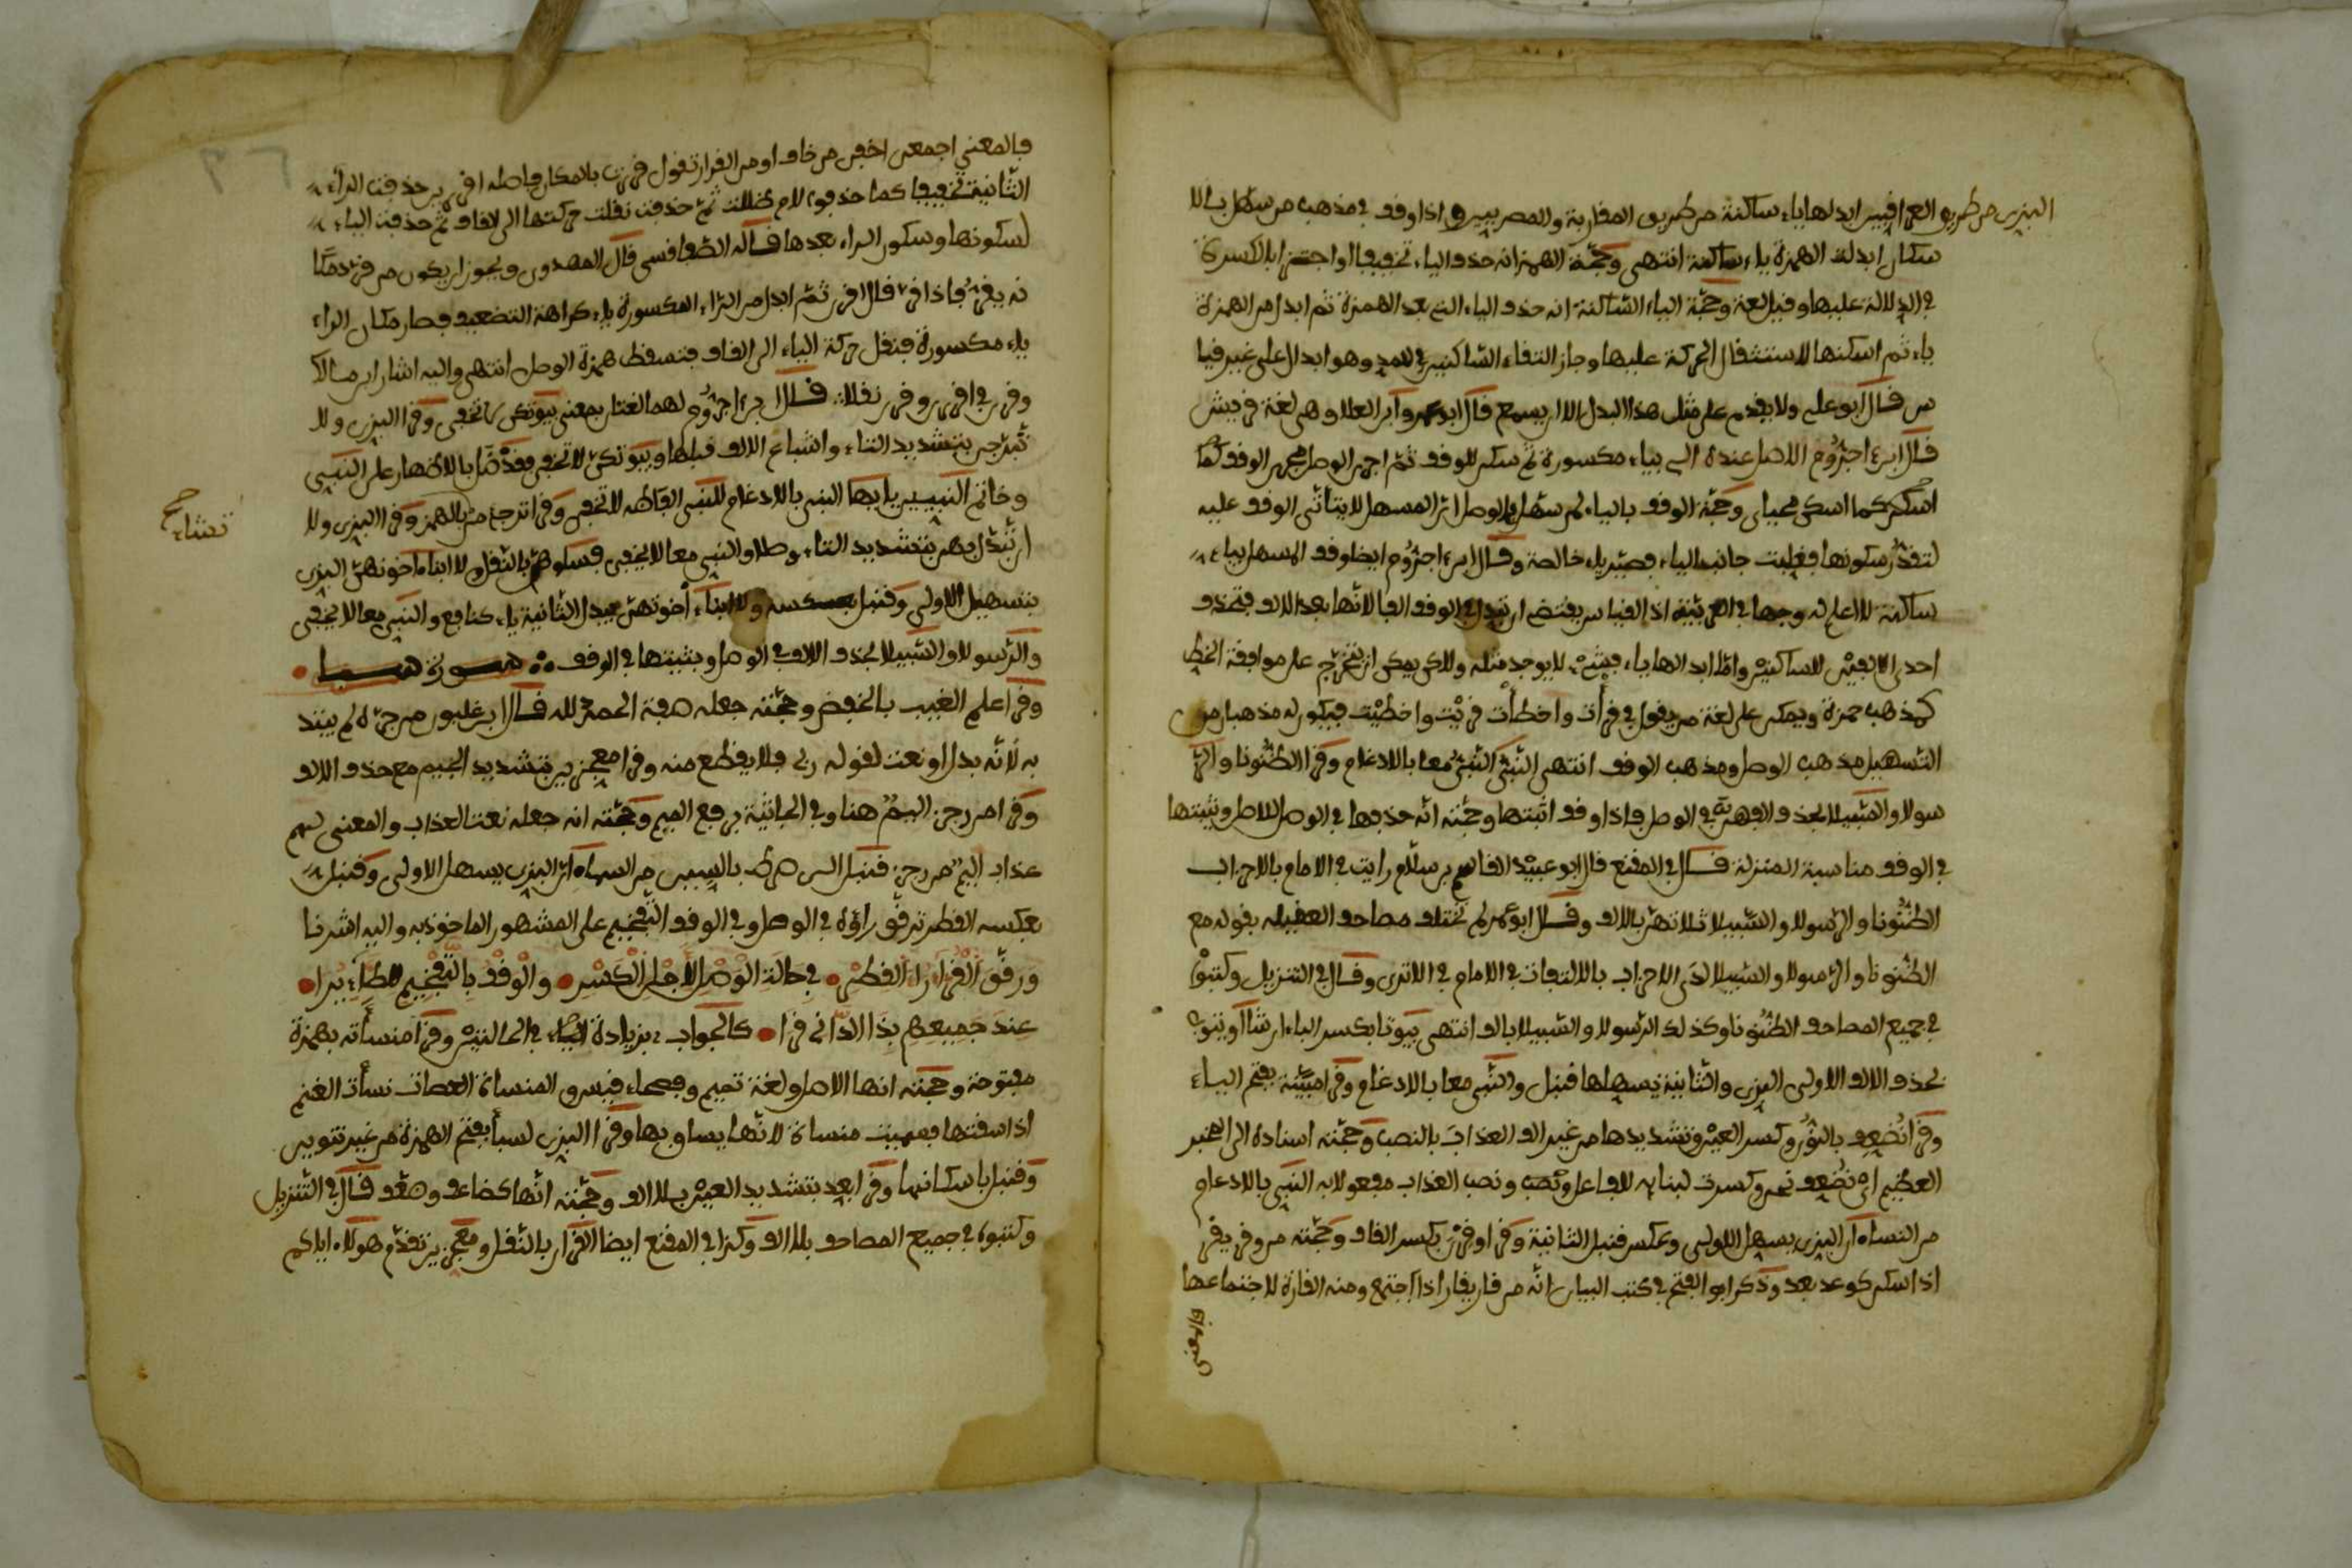 البزي من طريق العراقيين ابدلها ياء ساكنة من طريق المغاربة والمصريين واذا وقف في مذهب من سهل بلا
سكان ابدلت الهمزة ياء ساكنة انتهى وحجّة الهمز انه حذف الياء تخفيفا واجتزا بالكسرة
في الدلالة عليها وقيل لغة وحجّة الياء السّاكنة انه حذف الياء التي بعد الهمزة ثم ابدل من الهمزة
ياء ثم اسكنها لاستثقال الحركة عليها وجاز التقاء السّاكنين للمد وهو ابدال على غير قيا
س قال ابو علي ولا يقدم على مثل هذا البدل الا ان يسمع قال ابو عمرو ابن العلا وهي لغة قريش
قال ابن اجرّوم الاصل عنده الي بياء مكسورة ثم سكن للوقف ثمّ اجرى الوصل مجرى الوقف كما
اسكن كما اسكن محياي وحجّة الوقف بالياء لمن سهّل في الوصل ان المسهل لا يتأتّى الوقف عليه
لتعذّر سكونها فغلبت جانب الياء فصيّر ياء خالصة وقال ابن اجرّوم ايضا وقف المسهل بياء
ساكنة لا اعلم له وجها في العربيّة اذ القياس يقتضي ان تبدل في الوقف الفا لانّها بعد الالف فتحذف
احدى الالفين للساكنين واما ابدالها ياء فشيء لا يوجد مثله ولاكن يمكن ان تتخرّج على موافقة الخط
كمذهب حمزة ويمكن على لغة من يقول في قرأت واخطأت قريْت واخطيْت فيكون له مذهبان
التسهيل مذهب الوصل ومذهب الوقف انتهى النّبيّ النّبيّ معا بالادغام وقرا الظّنونا والر
سولا والسّبيلا بحذف الف في الوصل فاذا وقف اثبتها وحجّته انّه حذفها في الوصل للاصل ويثبتها
في الوقف مناسبة المنزلة قال في المقنع قال ابو عبيد القاسم بن سلّام رايت في الامام بالاحزاب
الظّنونا والرّسولا والسّبيلا ثلاثتهنّ بالالف وقال ابو عمر لم تختلف مصاحف
الظّنونا والرّسولا والسّبيلا لدى الاحزاب بالالفات في الامام في الاترى وقال في التنزيل وكتبوا
في جميع المصاحف الظّنونا وكذلك الرّسولا والسّبيلا بالف انتهى بيوتنا بكسر الباء ان شا او يتوب
بحذف الالف الاولى البزي والثّانية يسهلها قنبل والنّبي معا بالادغام وقرا مبيّنة بفتح الياء
وقرا نضعّف بالنّون وكسر العين وتشديدها من غير الف العذابَ بالنصب وحجّته اسناده الى المخبر
العظيم اي نضعّف نحن وكسرت لبنائه للفاعل ونصب العذاب مفعولا به النّبي بالادغام
من النساء ان البزي يسهل الاولى وعكس قنبل الثانية وقرا وقرن بكسر القاف وحجّته من وقر يقر
اذا سكن كوعد يعد وذكر ابو الفتح في كتب البيان انّه من قار يقار اذا اجتمع ومنه القارة لاجتماعها
فالمعنى اجمعن اخفى من خاف او من القرار تقول قررت بالمكان فاصله اقررن حذفت الراء
الثّانية تخفيفا كما حذفوا لام ظللت ثمّ حذفت نقلت حركتها الى القاف ثم حذفت الياء
لسكونها وسكون الراء بعدها قاله الصّفاقسي قال المهدوي ويجوز ان يكون من قررت مكا
نه يقرّ فاذا امر قال اقرر ثمّ ابدل من الرّاء المكسورة ياء كراهة التضعيف فصار مكان الراء
ياء مكسورة فنقل حركة الياء الى القاف فتسقط همزة الوصل انتهى واليه اشار ابن مالك
وقرن في اقررن وقرن نقلا قال ابن اجرّوم لهما لغتان بمعنى بيوتكن لا تخفى وقرا البزي ولا
تّبرّجن بتشديد التاء واشباع الالف قبلها وبيوتكنّ لا تخفى وقد مرّا بالاظهار على النّبي
وخاتم النّبيين يايها النبي بالادغام للنّبي لا تخفى وقرا ترجئ بالهمز وقرا البزي ولا
ان تّبدّل بهن بتشديد التاء وصلا والنبي معا لا يخفى فسلوهنّ بالنقل ولا ابناء اخونهنّ البزي
بتسهيل الاولى وقنبل ولا ابناء اخوتهنّ يبدل الثانية ياء كنافع والنّبي معا لا يخفى
والرّسولا والسّبيلا بحذف الالف في الوصل ويثبتها في الوقف سورة سبا
وقرا علم الغيب بالخفض وحجّته جعله صفة الحمد لله قال ابن غلبون من جرّه لم يبتد
به لانّه بدل او نعت لقوله ربي فلا يقطع منه وقرا معجزين بتشديد الجيم مع حذف الالف
وقرا من رجز اليم هنا وفي الجاثية برفع الميم وحجّته انه جعله نعت العذاب والمعنى لهم
عذاب اليم من رجز قنبل السراط بالسين من السماء ان البزي يسهل الاولى وقنبل
بعكسه القطر ترقّق راؤه في الوصل وفي الوقف التّفخيم على المشهور الماخوذ به واليه اشرنا
ورقّق القرّاء راء القطر في حالة الوصل لاجل الكسر والوقف بالتّفخيم للطّاء يرا
عند جميعهم بذا الدّاني قرا كالجواب بزيادة الياء في الحالتين وقرا منسأته بهمزة
مفتوحة وحجّته انها الاصل ولغة تميم وفصحاء قيس والمنساة العصا من نسأت الغنم
اذا سقتها فسميت منساة لانّها يساق بها وقرا البزي لسبأ بفتح الهمزة من غير تنوين
وقنبل باسكانها وقرا بعّد بتشديد العين بلا الف وحجّته انّها كضاعف وضعّف قال في التّنزيل
وكتبوا في جميع المصاحف بلا الف وكذا في المقنع ايضا القرءان بالنّقل ومعجزين تقدّم هولاء اياكم
تشاء
صح